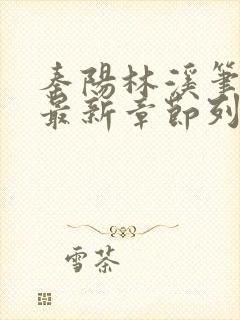 秦陽林溪筆
最新章節列
雪茶